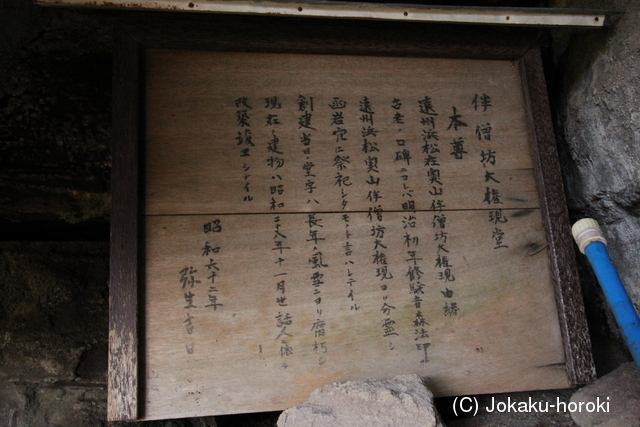 伴僧坊大権現堂
本尊
遠州浜松在奥山伴僧坊大権現由縁
古老ノ口碑ニコレバ明治初年修験者森法印ガ
遠州浜松奥山伴僧坊大権現ヨリ分霊シ
函岩穴ニ祭祀シタモノト言ハレテイル
創建当日ノ堂宇ハ長年ノ風雪ニヨリ腐朽シ
現在ノ建物ハ昭和二十八年十一月世話人
改築竣工シテイル
昭和六十三年
弥生吉日
(C) Jokaku-horoki